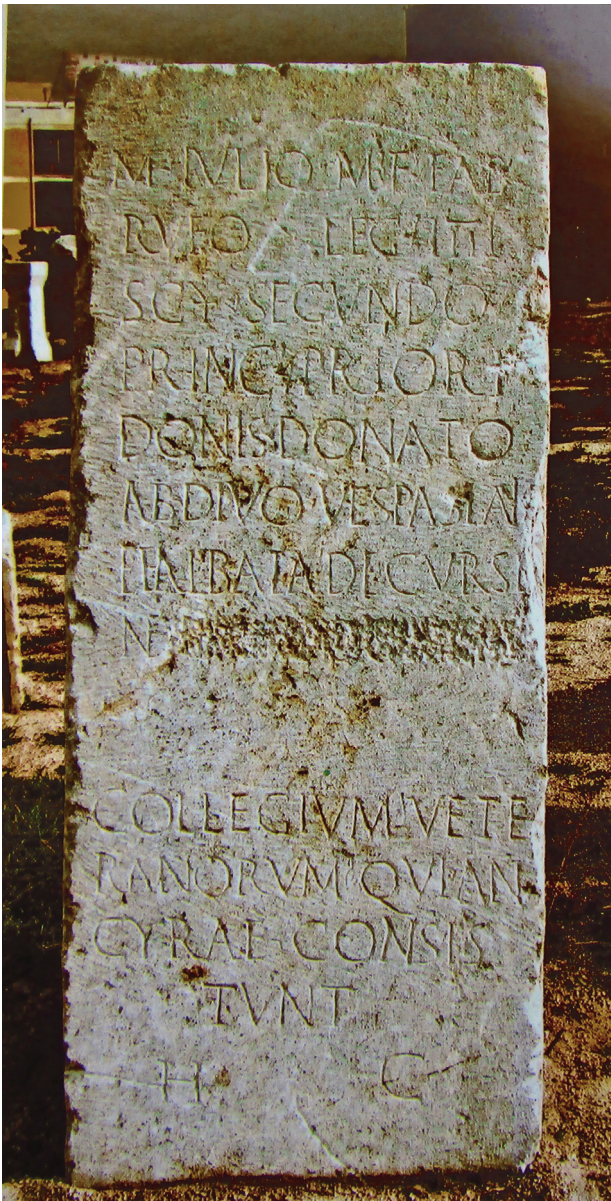 M·IVLIO·M·F·FAB
RVFO LEG·IIII
SCY·SECVNDO
PRINC·PRIORI
DONIS·DONATO
AB DIVO·VESPASIAN
ET ALBATA DECVRSI
N
COLLEGIVM·VETE
RANORVM·QVI AN
CYRAE·CONSIS
TVNT
H C